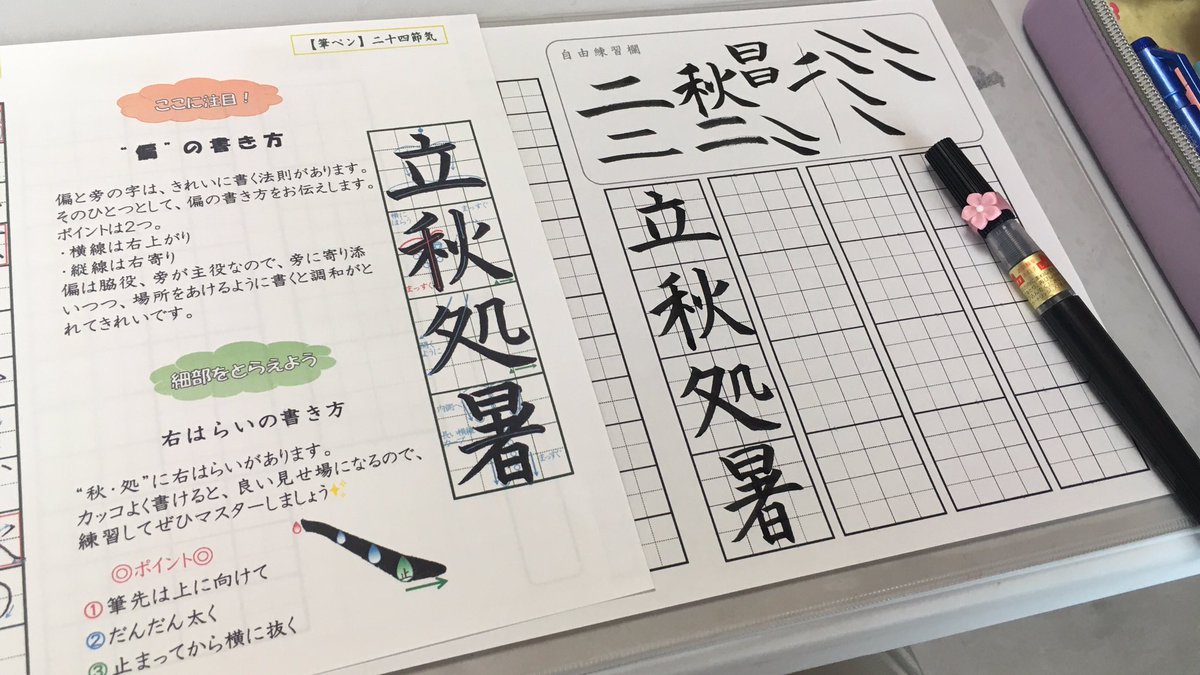 【筆ペン】二十四節気
ここに注目！
“偏”の書き方
偏と旁の字は、きれいに書く法則があります。
そのひとつとして、偏の書き方をお伝えします。
ポイントは2つ。
・横線は右上がり
・縦線は右寄り
偏は脇役、旁が主役なので、旁に寄り添
いつつ、場所をあけるように書くと調和がと
れてきれいです。
細部をとらえよう
右はらいの書き方
“秋・処”に右はらいがあります。
カッコよく書けると、良い見せ場になるので、
練習してぜひマスターしましょう✨
◎ポイント◎
①筆先は上に向けて
②だんだん太く
③止まってから横に抜く
止
立
秋
処
暑
まっすぐ
まっすぐ
内側
長い横線
まっすぐ
自由練習欄
二 秋 昌
二 二
立
秋
処
暑